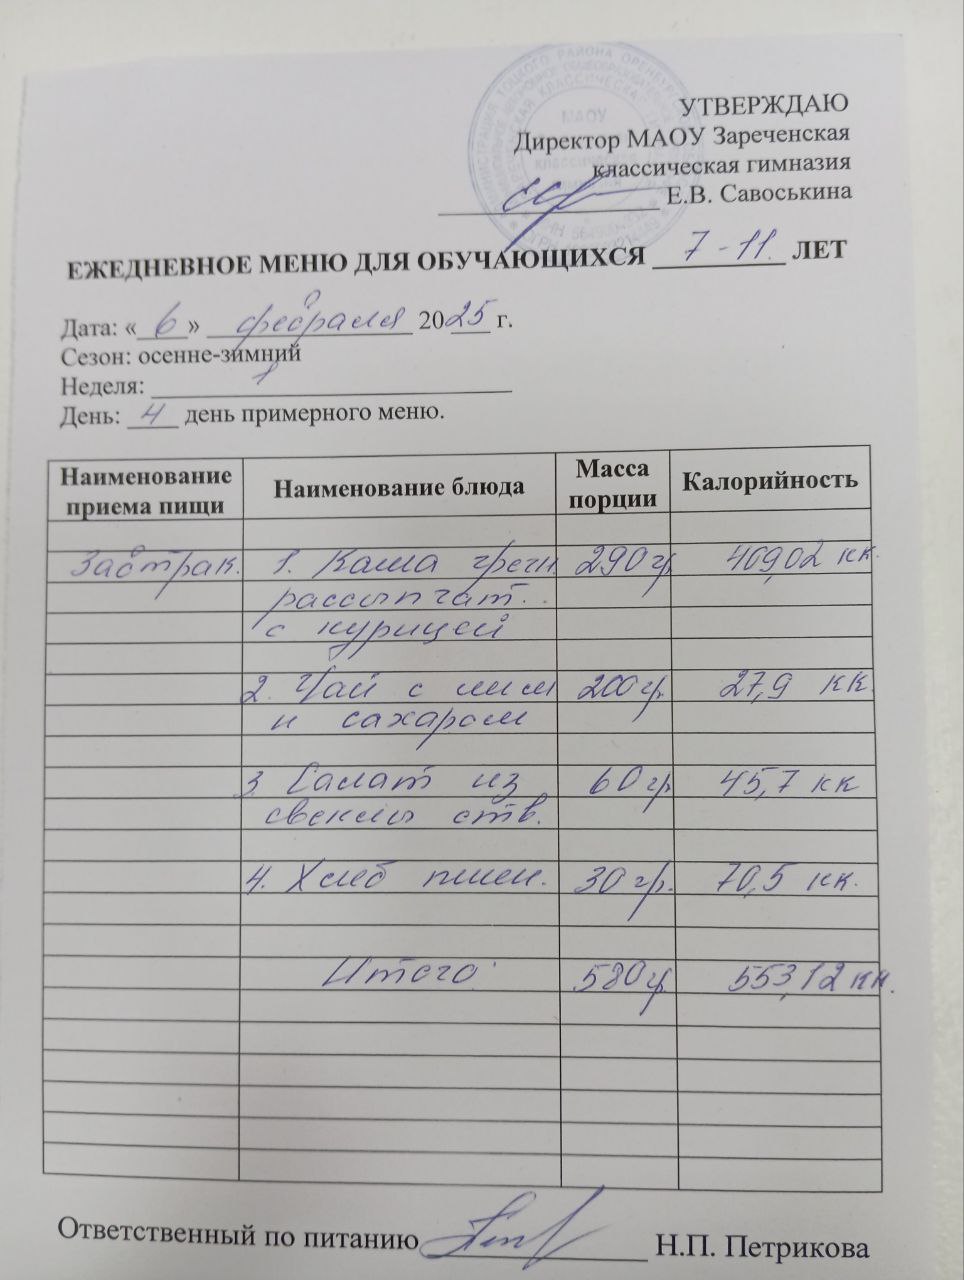 УТВЕРЖДАЮ
Директор МАОУ Зареченская
классическая гимназия
Е.В. Савоськина
МАОУ
ЕЖЕДНЕВНОЕ МЕНЮ ДЛЯ ОБУЧАЮЩИХСЯ 7-11. ЛЕТ
Дата: «6» февраля 2025 г.
Сезон: осенне-зимний
Неделя: 1
День: 4 день примерного меню.
Наименование приема пищи Наименование блюда Масса порции Калорийность
Завтрак. 1. Каша гречн 290гр 409,02 кк.
рассыпчат..
с курицей
2. Чай с лим 200гр. 27,9 кк.
и сахаром
3. Салат из 60гр 45,7 кк
свеклы отв.
4. Хлеб пшен. 30гр. 70,5 кк.
Итого: 580гр 553,12 кк.
Ответственный по питанию Н.П. Петрикова